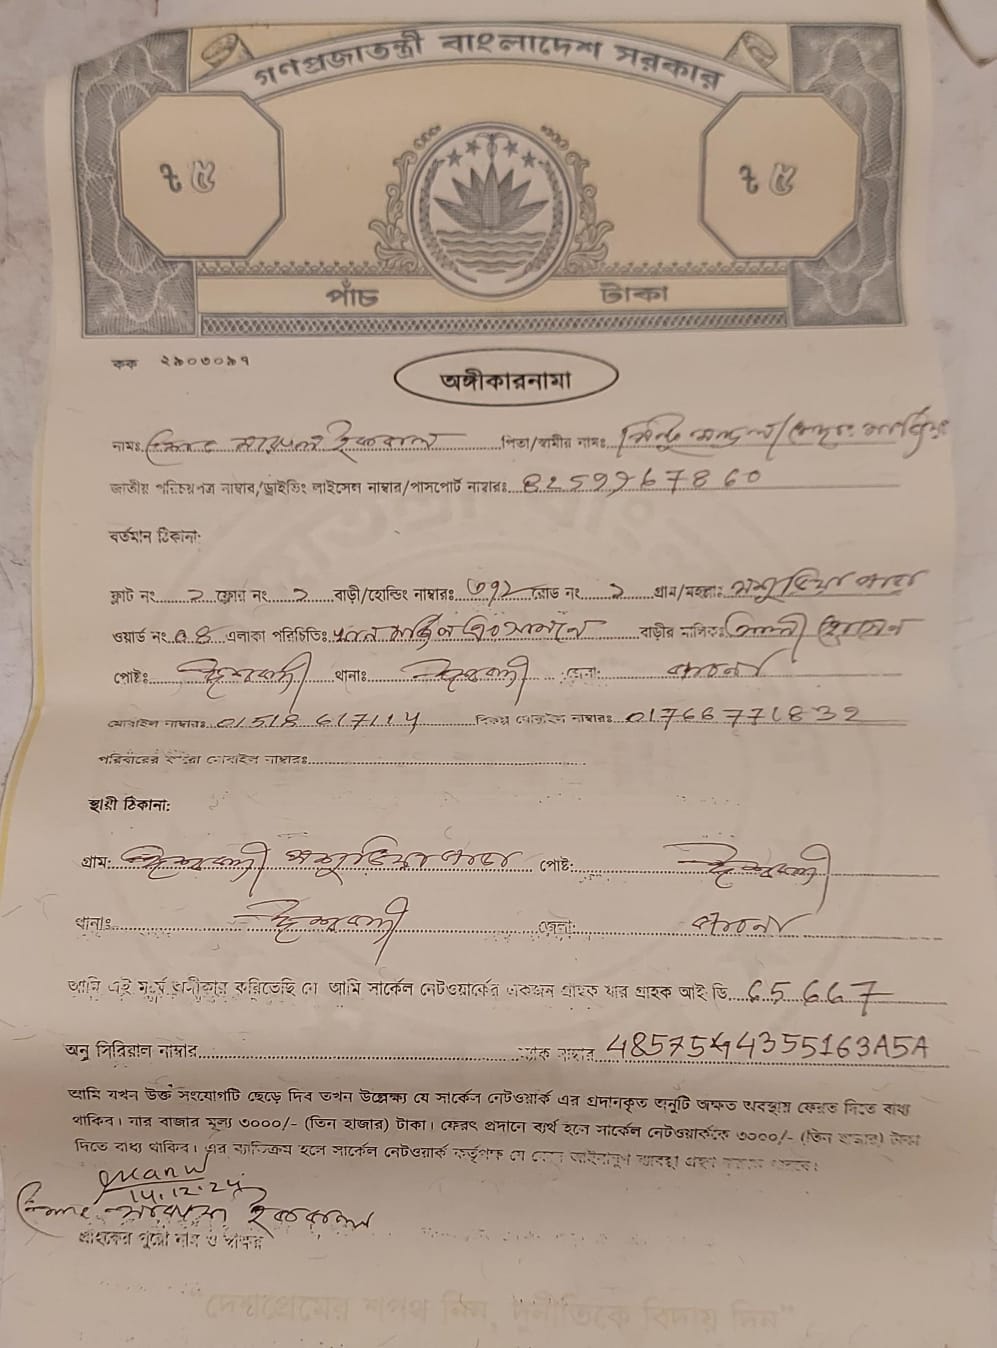 গণপ্রজাতন্ত্রী বাংলাদেশ সরকার
৳ ৫ ৳ ৫
পাঁচ টাকা
কক ২৯০৩০৯৭
অঙ্গীকারনামা
নামঃ ইকবাল পিতা/স্বামীর নামঃ
জাতীয় পরিচয়পত্র নাম্বার/ড্রাইভিং লাইসেন্স নাম্বার/পাসপোর্ট নাম্বারঃ 8259967860
বর্তমান ঠিকানা:
ফ্লাট নং ২ ফ্লোর নং ২ বাড়ী/হোল্ডিং নাম্বারঃ ৩৭২ রোড নং ২ গ্রাম/মহল্লা: মশুরিয়া পাড়া
ওয়ার্ড নং 08 এলাকা পরিচিতিঃ বাড়ীর মালিকঃ হোসেন
পোষ্টঃ ঈশ্বরদী থানাঃ ঈশ্বরদী জেলা: পাবনা
মোবাইল নাম্বারঃ 01518 617114 বিকল্প মোবাইল নাম্বারঃ 01766771832
পরিবারের মোবাইল নাম্বারঃ
স্থায়ী ঠিকানা:
গ্রাম: ঈশ্বরদী মশুরিয়া পাড়া পোষ্ট: ঈশ্বরদী
থানাঃ ঈশ্বরদী জেলা: পাবনা
আমি এই মর্মে অঙ্গীকার করিতেছি যে আমি সার্কেল নেটওয়ার্কের একজন গ্রাহক যার গ্রাহক আই ডি 65667
অনু সিরিয়াল নাম্বার ম্যাক নাম্বার 48575444355163A5A
আমি যখন উক্ত সংযোগটি ছেড়ে দিব তখন উল্লেক্ষ্য যে সার্কেল নেটওয়ার্ক এর প্রদানকৃত অনুটি অক্ষত অবস্থায় ফেরত দিতে বাধ্য
থাকিব। যার বাজার মূল্য ৩০০০/- (তিন হাজার) টাকা। ফেরৎ প্রদানে ব্যর্থ হলে সার্কেল নেটওয়ার্ককে ৩০০০/- (তিন হাজার) টাকা
দিতে বাধ্য থাকিব। এর ব্যতিক্রম হলে সার্কেল নেটওয়ার্ক কর্তৃপক্ষ যে কোন আইনানুগ ব্যবস্থা গ্রহণ করতে পারবে।
14.12.24
ইকবাল
গ্রাহকের পুরো নাম ও স্বাক্ষর
"দেশপ্রেমের শপথ নিন, দুর্নীতিকে বিদায় দিন"